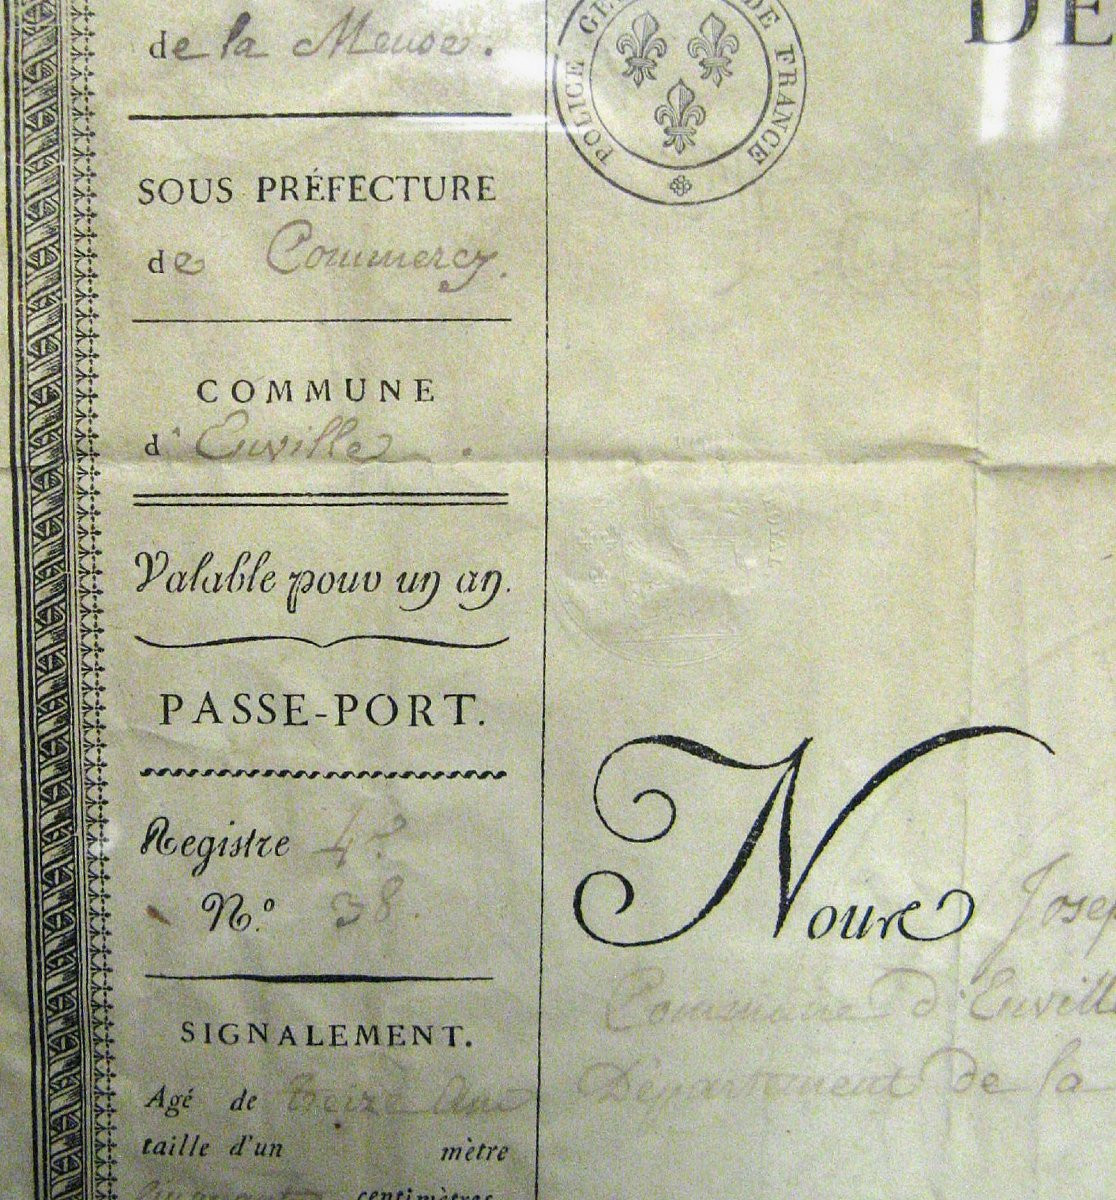 de la Meuse.
POLICE GÉ DE FRANCE
DE
SOUS PRÉFECTURE
de Commercy.
COMMUNE
d'Euville.
ROYAL
Valable pour un an.
PASSE-PORT.
Registre 4e
N.º 38.
Nous Josep
Commune d'Euvill
Département de la
SIGNALEMENT.
Agé de treize Ans
taille d'un mètre
centimètres